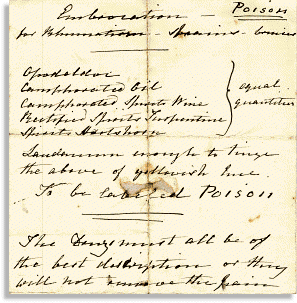 Embrocation — Poison
for Rheumatism - Sprains -
Opodeldoc
Camphorated Oil
Camphorated Spirits Wine
Rectified Spirits Turpentine
Spirits Hartshorn
equal
quantities
Laudanum enough to tinge
the above of yellowish hue.
To be labelled Poison
The Drugs must all be of
the best description or they
will not remove the pain